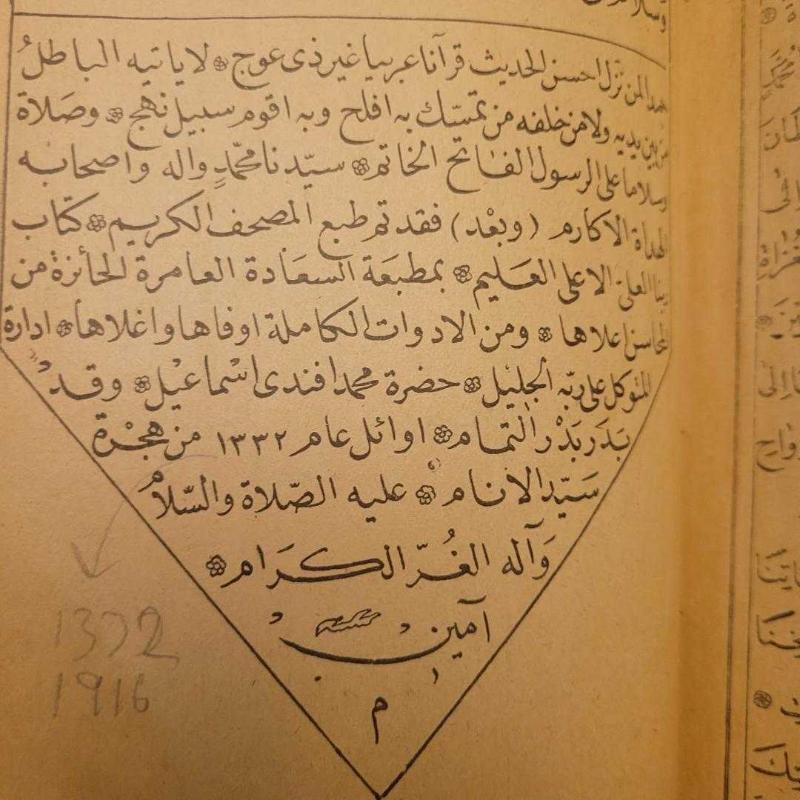 حمدا لمن نزل احسن الحديث قرآنا عربيا غير ذى عوج ۞ لا ياتيه الباطل
من بين يديه ولا من خلفه من تمسّك به افلح وبه اقوم سبيل نهج ۞ وصلاة
وسلاما على الرسول الفاتح الخاتم ۞ سيّدنا محمّدٍ واله واصحابه
الهداة الاكارم (وبعْد) فقد تم طبع المصحف الكريم ۞ كتاب
ربنا العلىّ الاعلى العليم ۞ بمطبعَة السعَادة العامرة الحائزة من
المحاسن اعلاها ۞ ومن الادوات الكاملة اوفاها واغلاها ۞ ادارة
المتوكل على ربّه الجليل ۞ حضرة محمد افندى اسْماعيْل ۞ وقدْ
بَدَر بَدْر التمام ۞ اوائل عام ١٣٣٢ من هجْرة
سَيّد الانام ۞ عليه الصّلاة والسّلامُ
وَآله الغُرّ الكرَام ۞
آمين
م
1332
1916